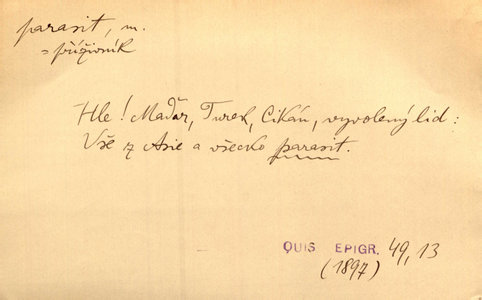 parasit, m.
= příživník
Hle! Maďar, Turek, Cikán, vyvolený lid:
Vše z Asie a všecko parasit.
QUIS EPIGR. 49, 13
(1897)